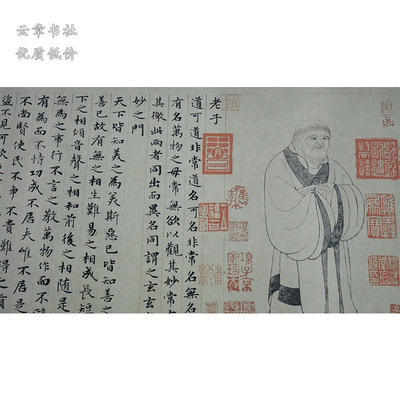 云章书社
优质低价
老子
道可道非常道名可名非常名無名
有名萬物之母常無欲以觀其妙常
其徼此兩者同出而異名同謂之玄玄
妙之門
天下皆知美之為美斯惡已皆知善之
善已故有無之相生難易之相成長短
下之相傾音聲之相和前後之相随是
無為之事行不言之教萬物作而不
有為而不恃功成不居夫唯不居是
不尚賢使民不争不貴難得之
盗不見可欲